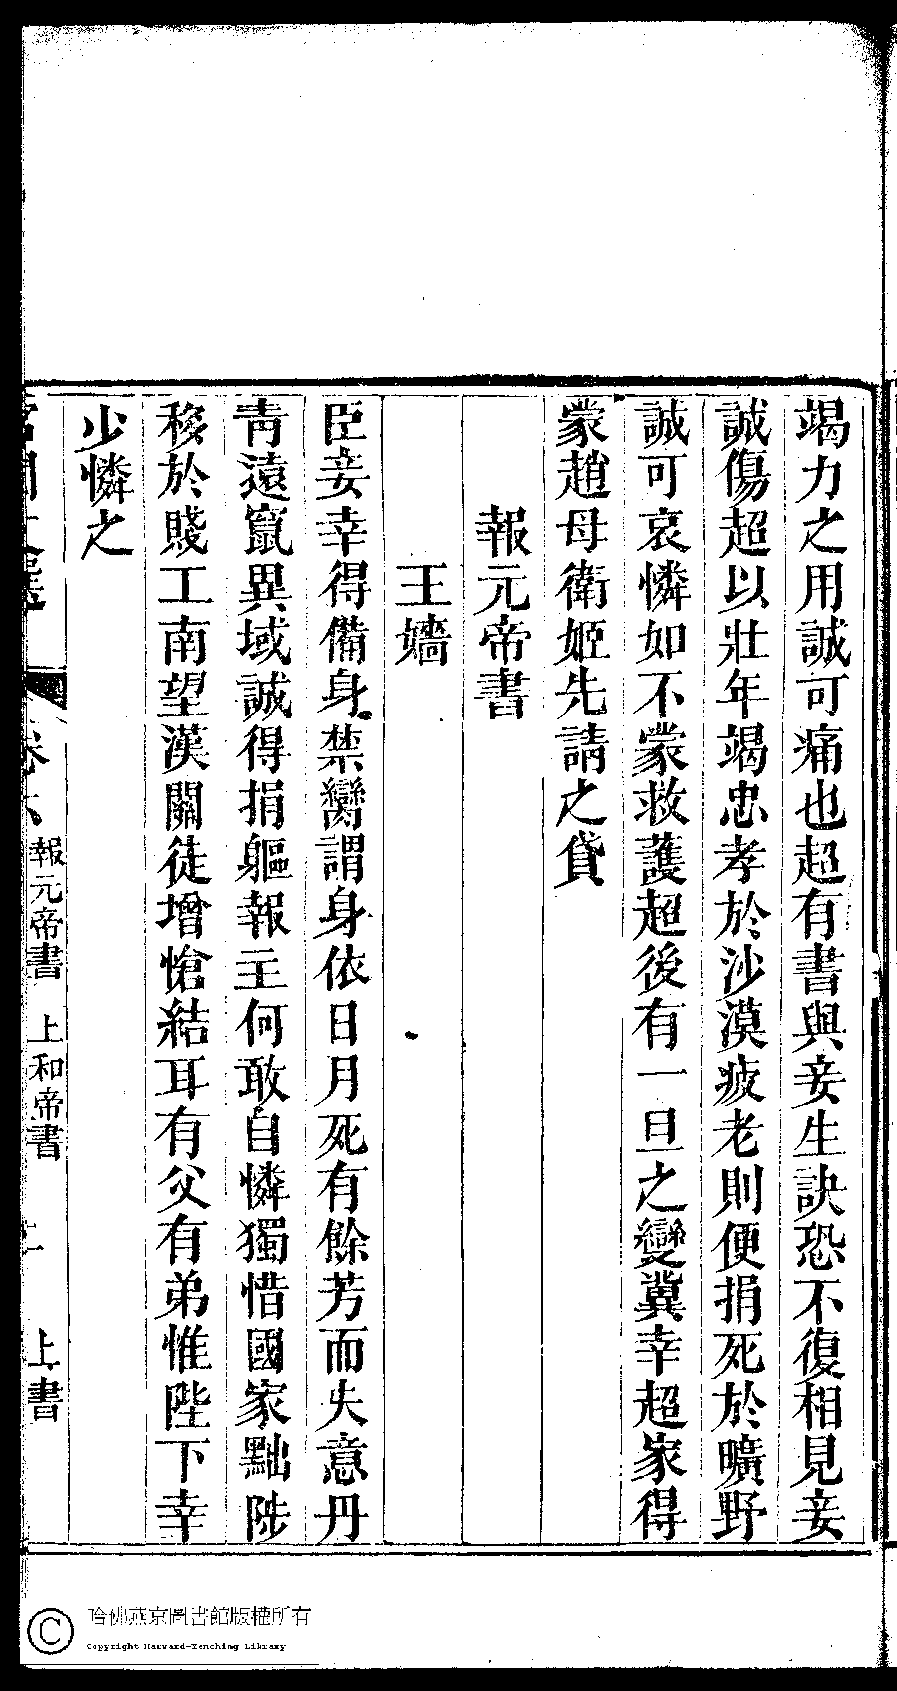 竭力之用誠可痛也超有書與妾生訣恐不復相見妾
誠傷超以壯年竭忠孝於沙漠疲老則便捐死於曠野
誠可哀憐如不蒙救護超後有一旦之變冀幸超家得
蒙趙母衛姬先請之貸
報元帝書
王嬙
臣妾幸得備身禁臠謂身依日月死有餘芳而失意丹
青遠竄異域誠得捐軀報主何敢自憐獨惜國家黜陟
移於賤工南望漢關徒增愴結耳有父有弟惟陛下幸
少憐之
卷六 報元帝書 上和帝書 上書
哈佛燕京圖書館版權所有
Copyright Harvard-Yenching Library